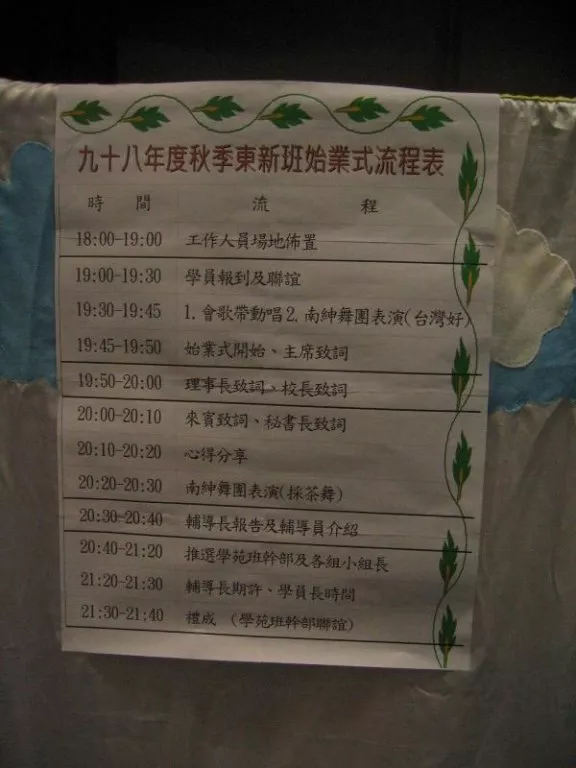 九十八年度秋季東新班始業式流程表
時 間 流 程
18:00-19:00 工作人員場地佈置
19:00-19:30 學員報到及聯誼
19:30-19:45 1.會歌帶動唱2.南紳舞團表演(台灣好)
19:45-19:50 始業式開始、主席致詞
19:50-20:00 理事長致詞、校長致詞
20:00-20:10 來賓致詞、秘書長致詞
20:10-20:20 心得分享
20:20-20:30 南紳舞團表演(採茶舞)
20:30-20:40 輔導長報告及輔導員介紹
20:40-21:20 推選學苑班幹部及各組小組長
21:20-21:30 輔導長期許、學員長時間
21:30-21:40 禮成 (學苑班幹部聯誼)